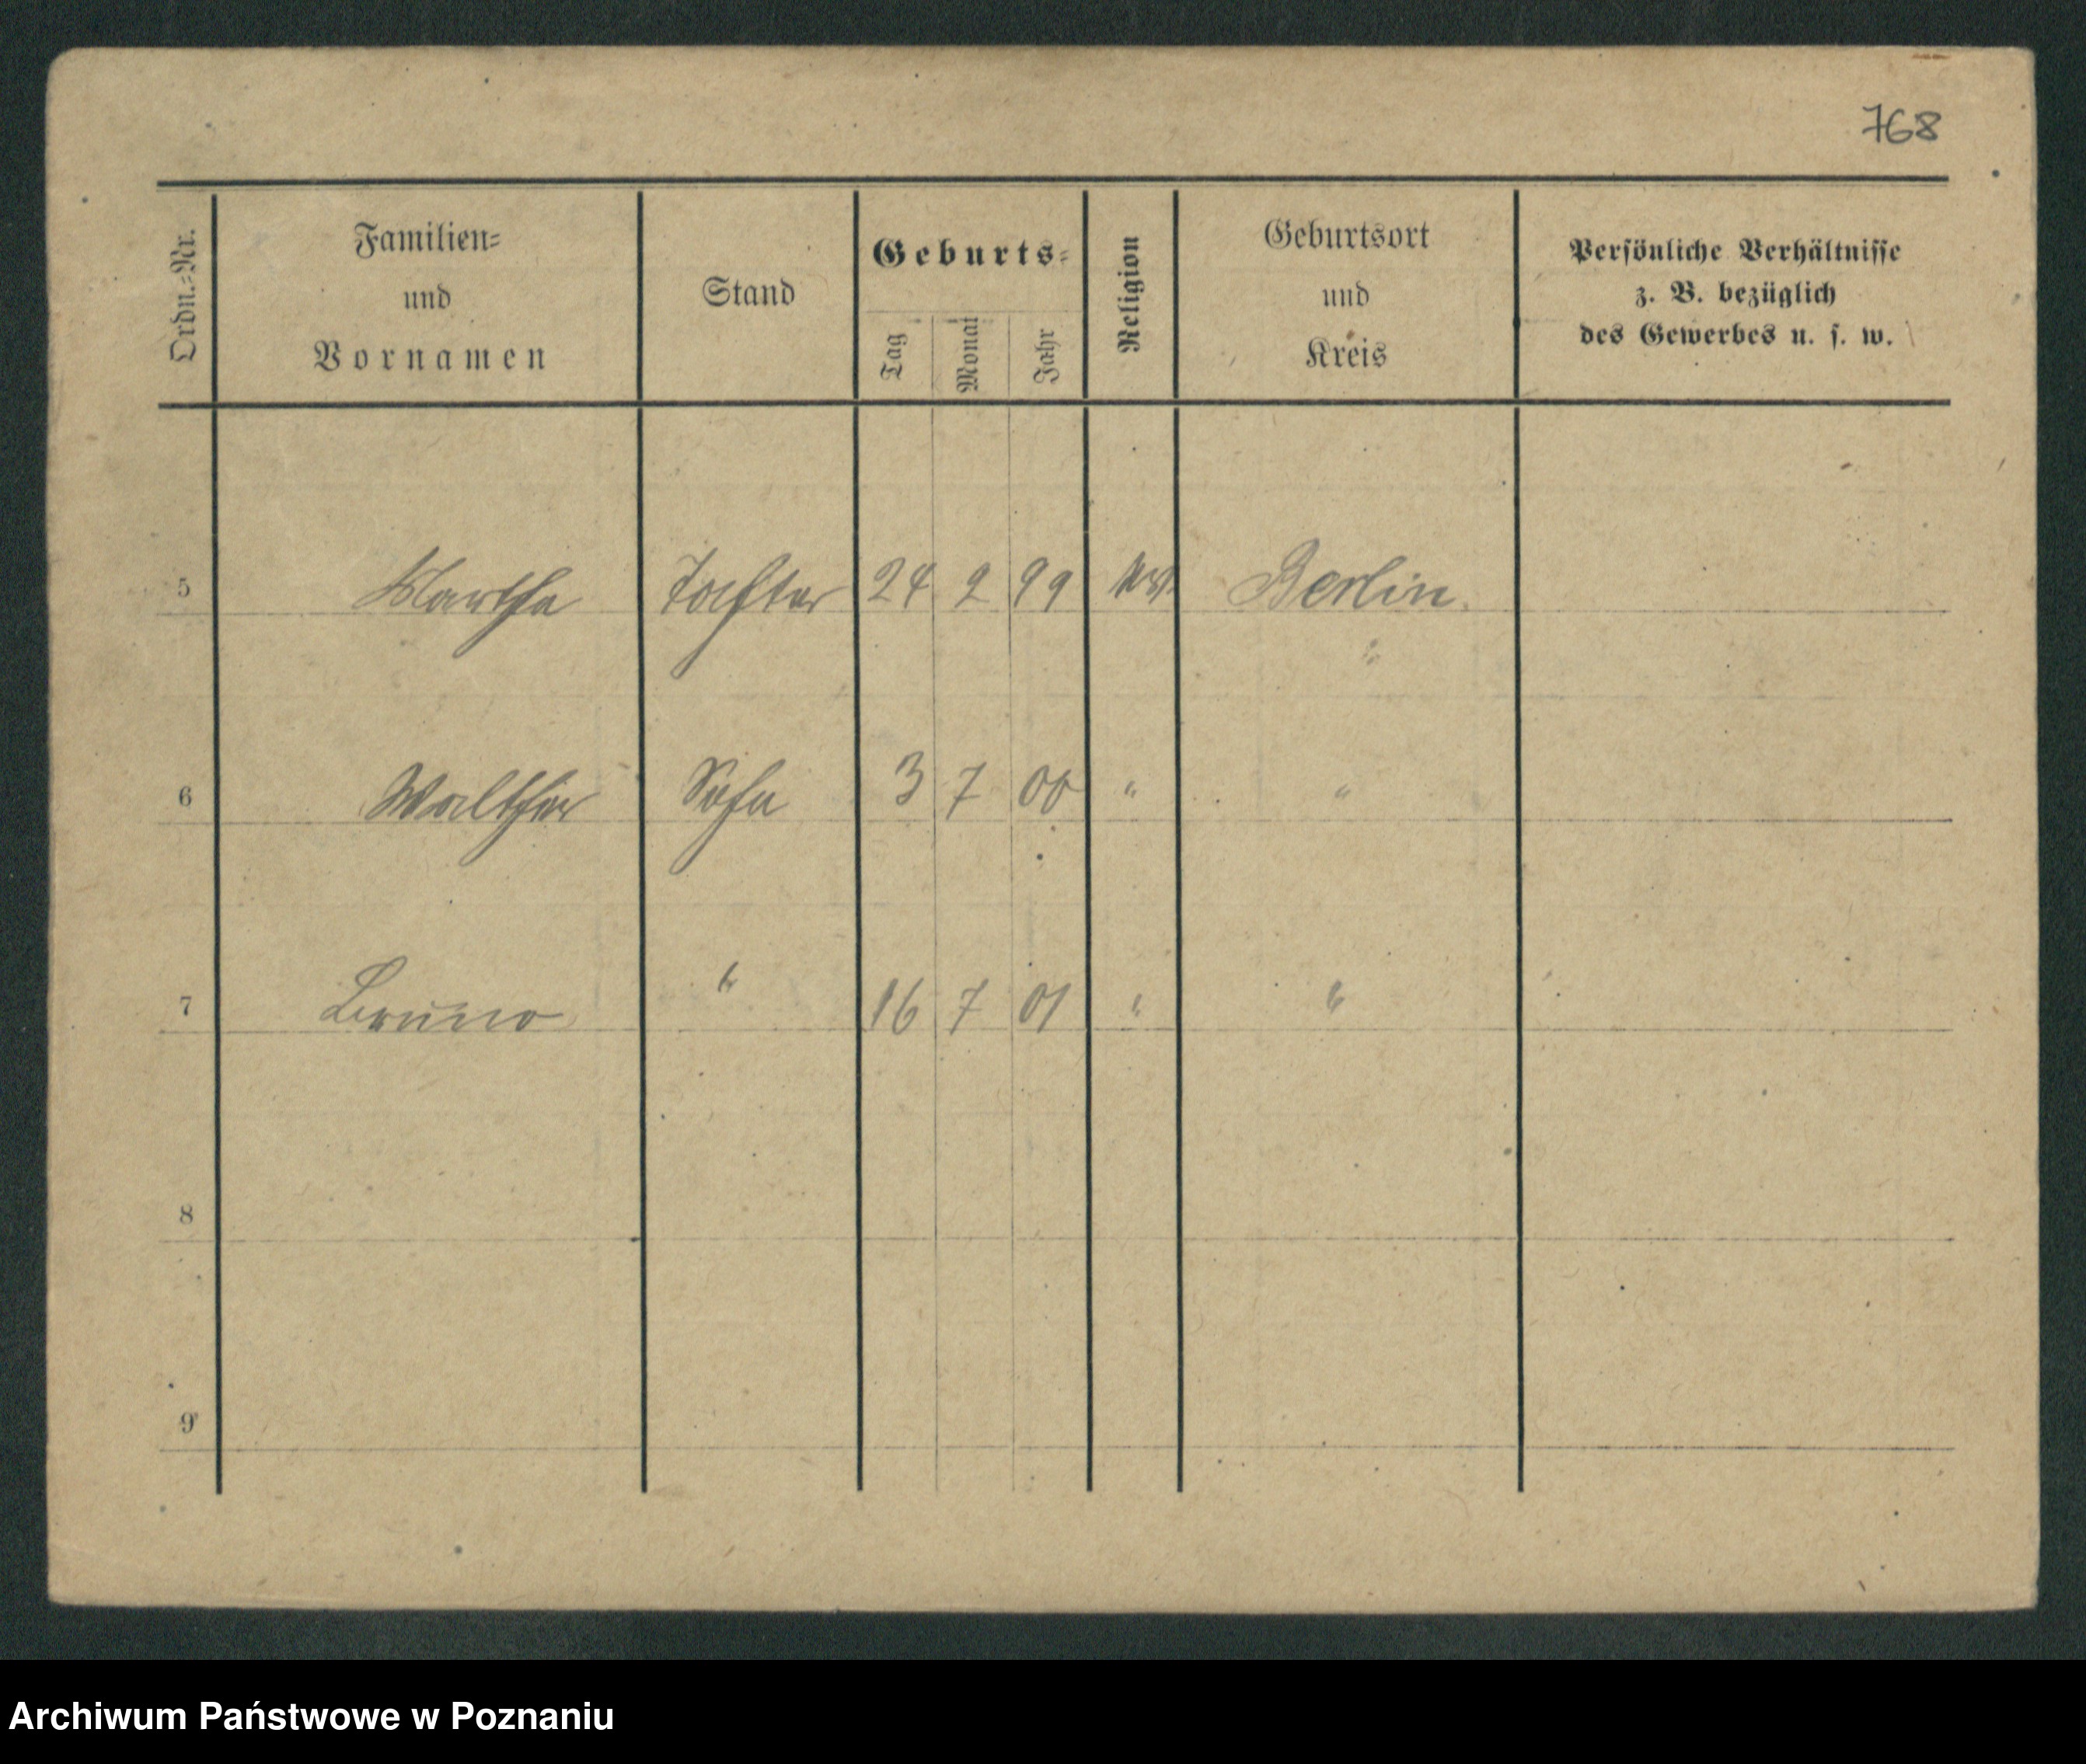 768
Ordn.-Nr.
Familien-
und
Vornamen
Stand
Geburts-
Tag
Monat
Jahr
Religion
Geburtsort
und
Kreis
Persönliche Verhältnisse
z. B. bezüglich
des Gewerbes u. s. w.
5 Martha Tochter 24 2 99 Berlin
"
6 Walther Sohn 3 7 00 " "
7 Bruno " 16 7 01 " "
8
9
Archiwum Państwowe w Poznaniu